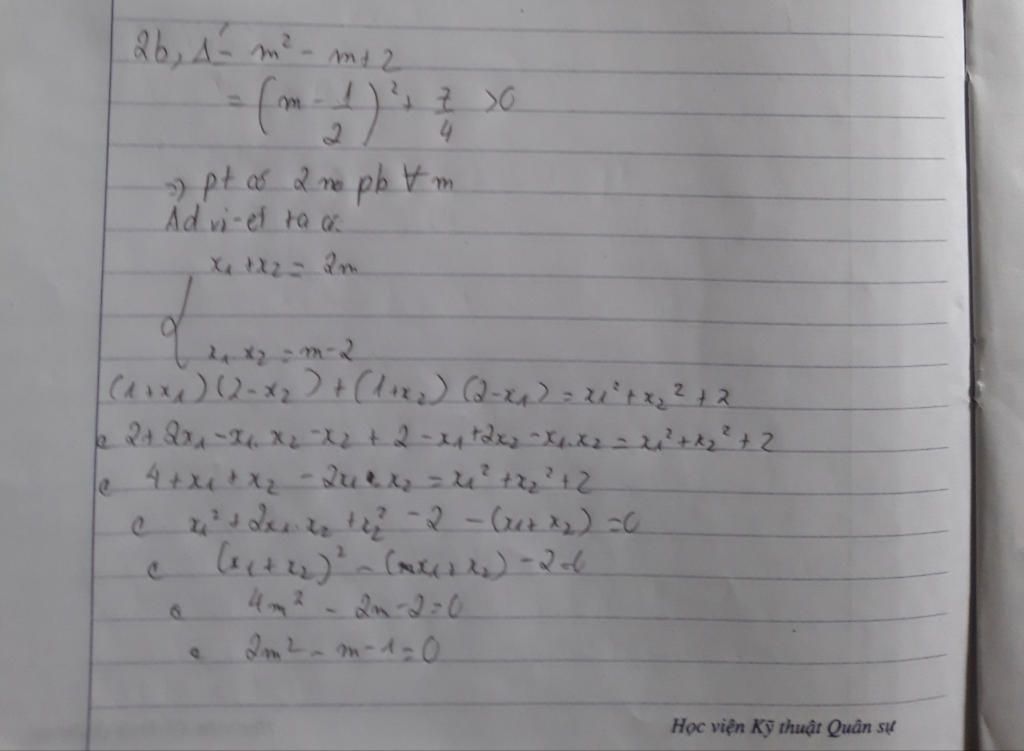 2b, Δ' = m² - m + 2
= (m - 1/2)² + 7/4 >0
=> pt có 2 no pb ∀ m
Ad vi-et ta có:
x₁ + x₂ = 2m
x₁ x₂ = m-2
(1+x₁)(2-x₂) + (1+x₂)(2-x₁) = x₁² + x₂² + 2
2 + 2x₁ - x₁.x₂ - x₂ + 2 - x₁ + 2x₂ - x₁.x₂ = x₁² + x₂² + 2
4 + x₁ + x₂ - 2x₁ x₂ = x₁² + x₂² + 2
x₁² + 2x₁.x₂ + x₂² - 2 - (x₁ + x₂) = 0
(x₁ + x₂)² - (x₁ + x₂) - 2 = 0
4m² - 2m - 2 = 0
2m² - m - 1 = 0
Học viện Kỹ thuật Quân sự